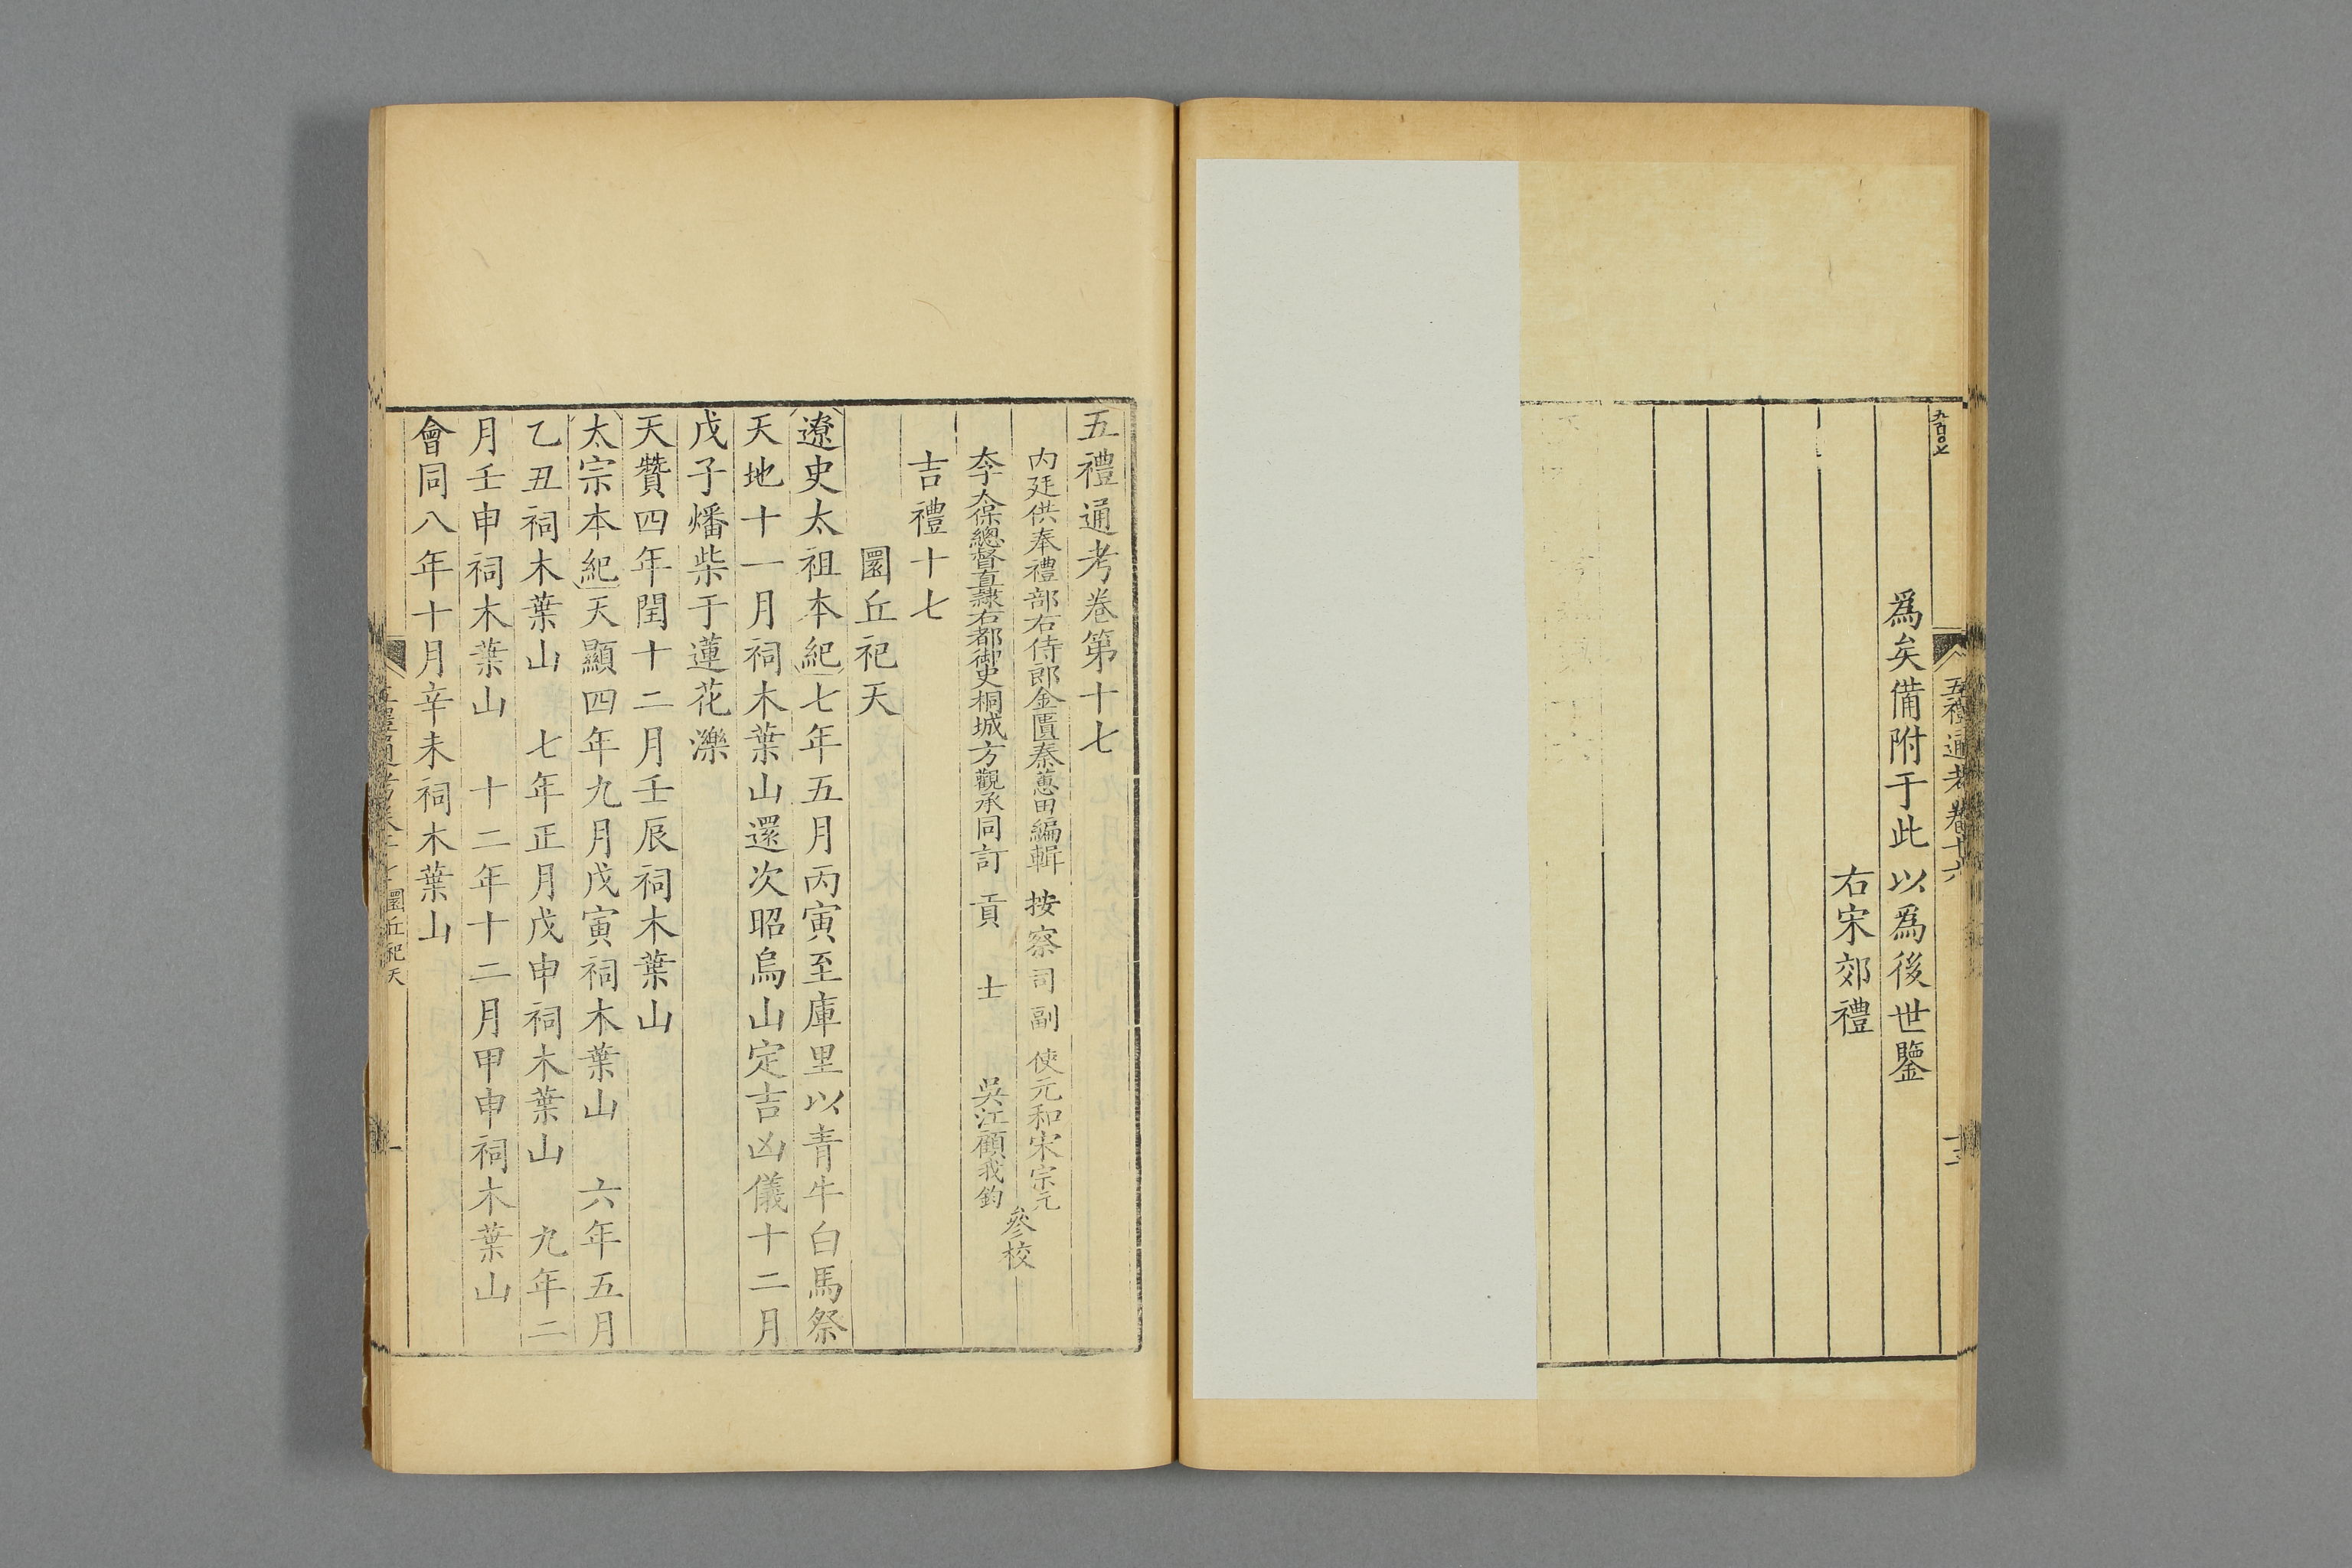 五禮通考卷十六
爲矣備附于此以爲後世鑒
右宋郊禮
五禮通考卷第十七
内廷供奉禮部右侍郎金匱秦蕙田編輯 按察司副使元和宋宗元
太子太保總督直隸右都御史桐城方觀承同訂 貢士吳江顧我鈞
參校
吉禮十七
圜丘祀天
遼史太祖本紀七年五月丙寅至庫里以青牛白馬祭
天地十一月祠木葉山還次昭烏山定吉凶儀十二月
戊子燔柴于蓮花濼
天贊四年閏十二月壬辰祠木葉山
太宗本紀天顯四年九月戊寅祠木葉山 六年五月
乙丑祠木葉山 七年正月戊申祠木葉山 九年二
月壬申祠木葉山 十二年十二月甲申祠木葉山
會同八年十月辛未祠木葉山
圜丘祀天 一